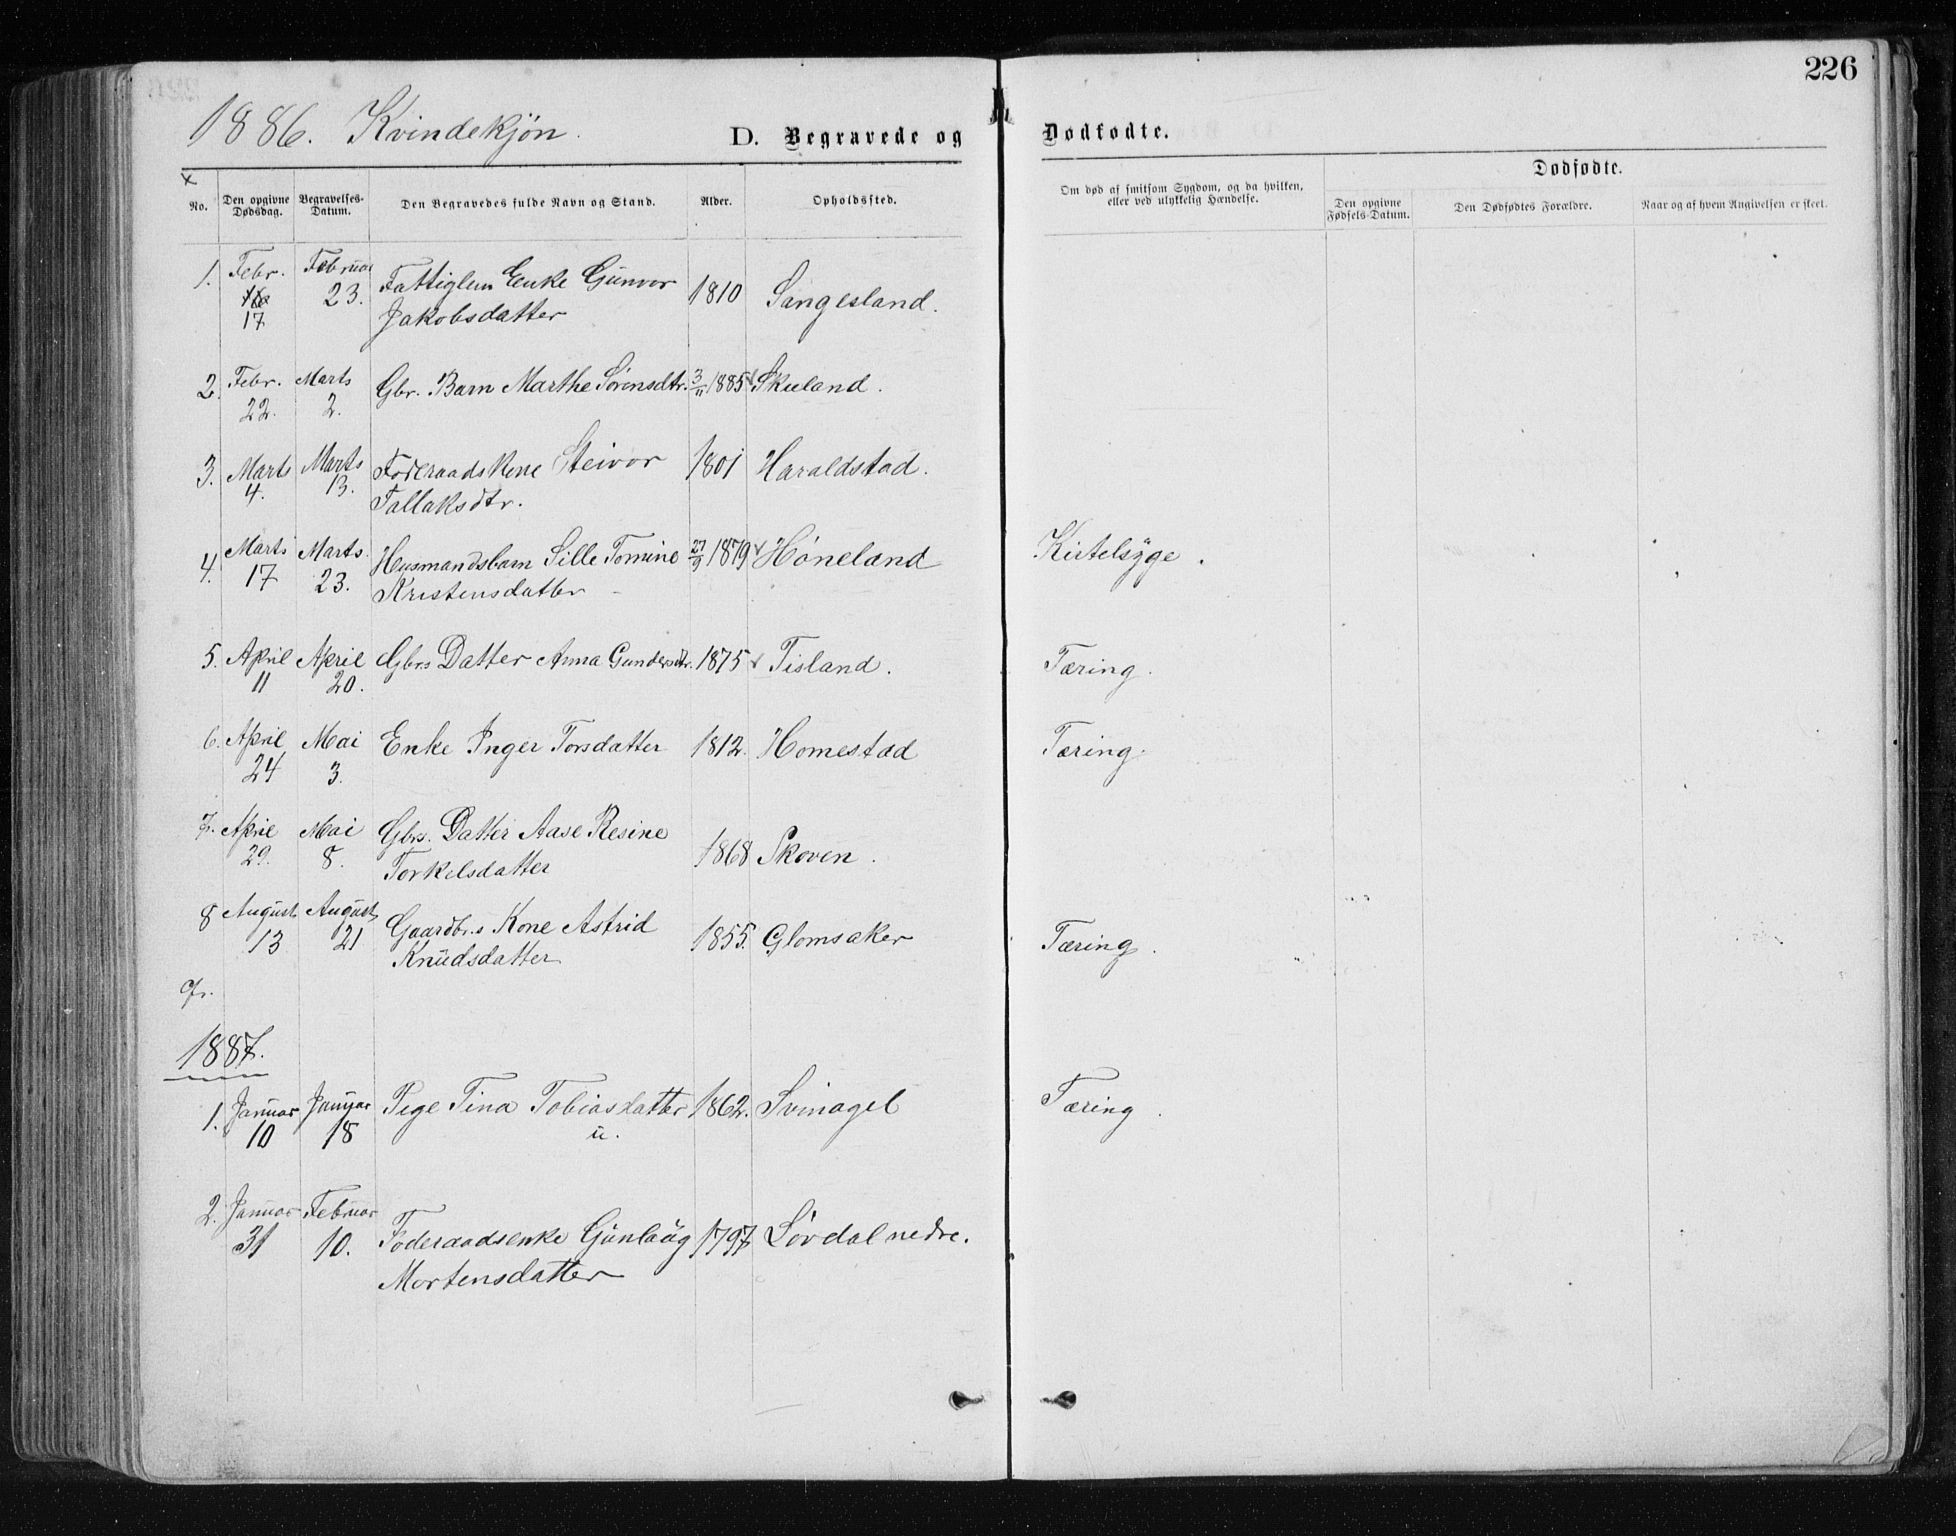 226
1886. Kvindekjøn.
D. Begravede og Dødfødte.
No. Den opgivne Dødsdag. Begravelses-Datum. Den Begravedes fulde Navn og Stand. Alder. Opholdssted. Om død af smitsom Sygdom, og da hvilken, eller ved ulykkelig Hændelse. Dødfødte. Den opgivne Fødsels-Datum. Den Dødfødtes Forældre. Naar og af hvem Angivelsen er skeet.
1. Febr. 17 Februar 23. Fattiglem Enke Gunvor Jakobsdatter 1810 Sangesland.
2. Febr. 22. Marts 2. Gbr. Barn Marthe Sørensdtr. 3/11 1885 Skueland.
3. Marts 4. Marts 13. Føderaadskone Steivor Tallaksdtr. 1801 Haraldstad.
4. Marts 17 Marts 23. Husmandsbarn Sille Tomine Kristensdatter 27/9 1879 Høneland Kirtelsyge.
5. April 11 April 20. Gbrs Datter Anna Gundersdtr. 1875 Tisland. Tæring.
6. April 24 Mai 3. Enke Inger Torsdatter 1812. Homestad Tæring.
7. April 29. Mai 8. Gbrs. Datter Aase Resine Torkelsdatter 1868 Skoven.
8 August 13 August 21 Gaardbr.s Kone Astrid Knudsdatter 1855. Glomsaker Tæring.
9.
1887.
1. Januar 10 Januar 18 Pige Tina Tobiasdatter u. 1862. Svinagel Tæring.
2. Januar 31 Februar 10. Føderaadsenke Gunlaug Mortensdatter 1797 Løvdal nedre.